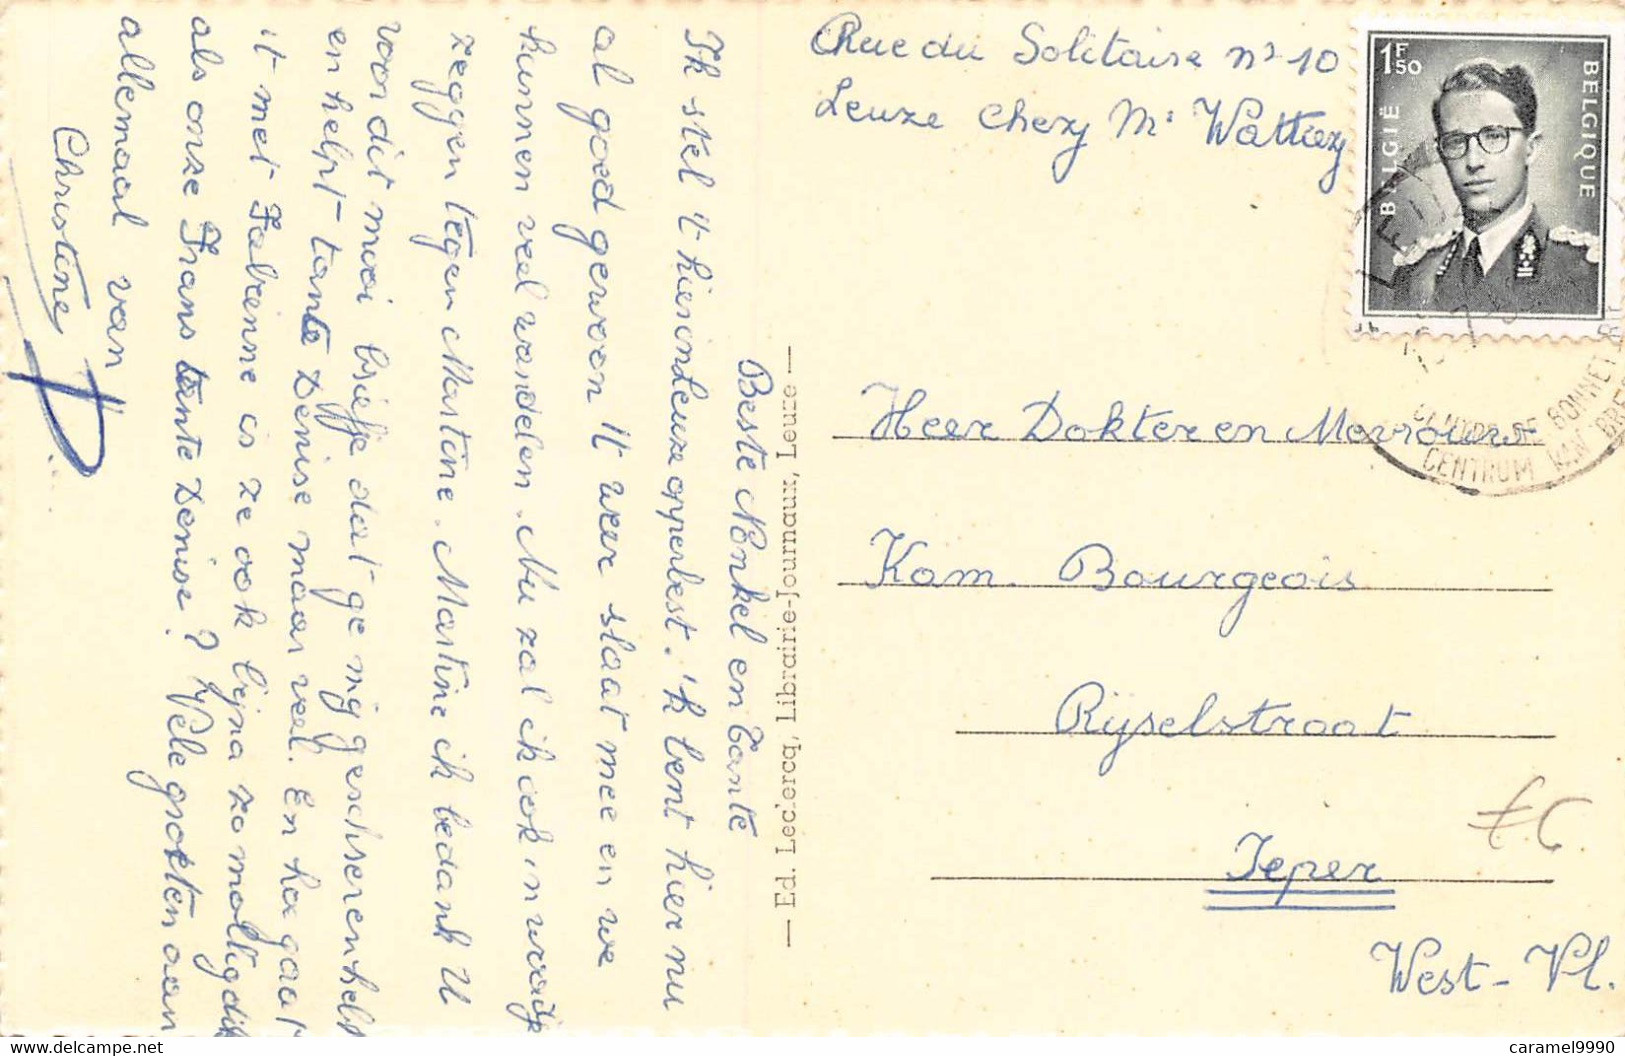 Rue du Solitaire n° 10
Leuze chezy Mr Wattiez
1F50
BELGIË
BELGIQUE
CENTRUM VAN
Heer Dokter en Mevrouw
Kom. Bourgeois
Rijselstraat
Ieper
West-Vl.
— Ed. Leclercq, Librairie-Journaux, Leuze —
Beste Nonkel en Tante
Ik stel 't hier in Leuze opperbest. 'k bent hier nu
al goed gewoon 't weer slaat mee en we
kunnen veel wandelen. Nu zal ik ook
zeggen tegen Martine. Martine ik bedank U
voor dit mooi briefje dat ge mij geschreven hebt
en helpt tante Denise maar veel. En hoe gaat
it met Fabienne is ze ook bijna zo
als onze Frans tante Denise? Vele groeten aan
allemaal van
Christine
caramel9990